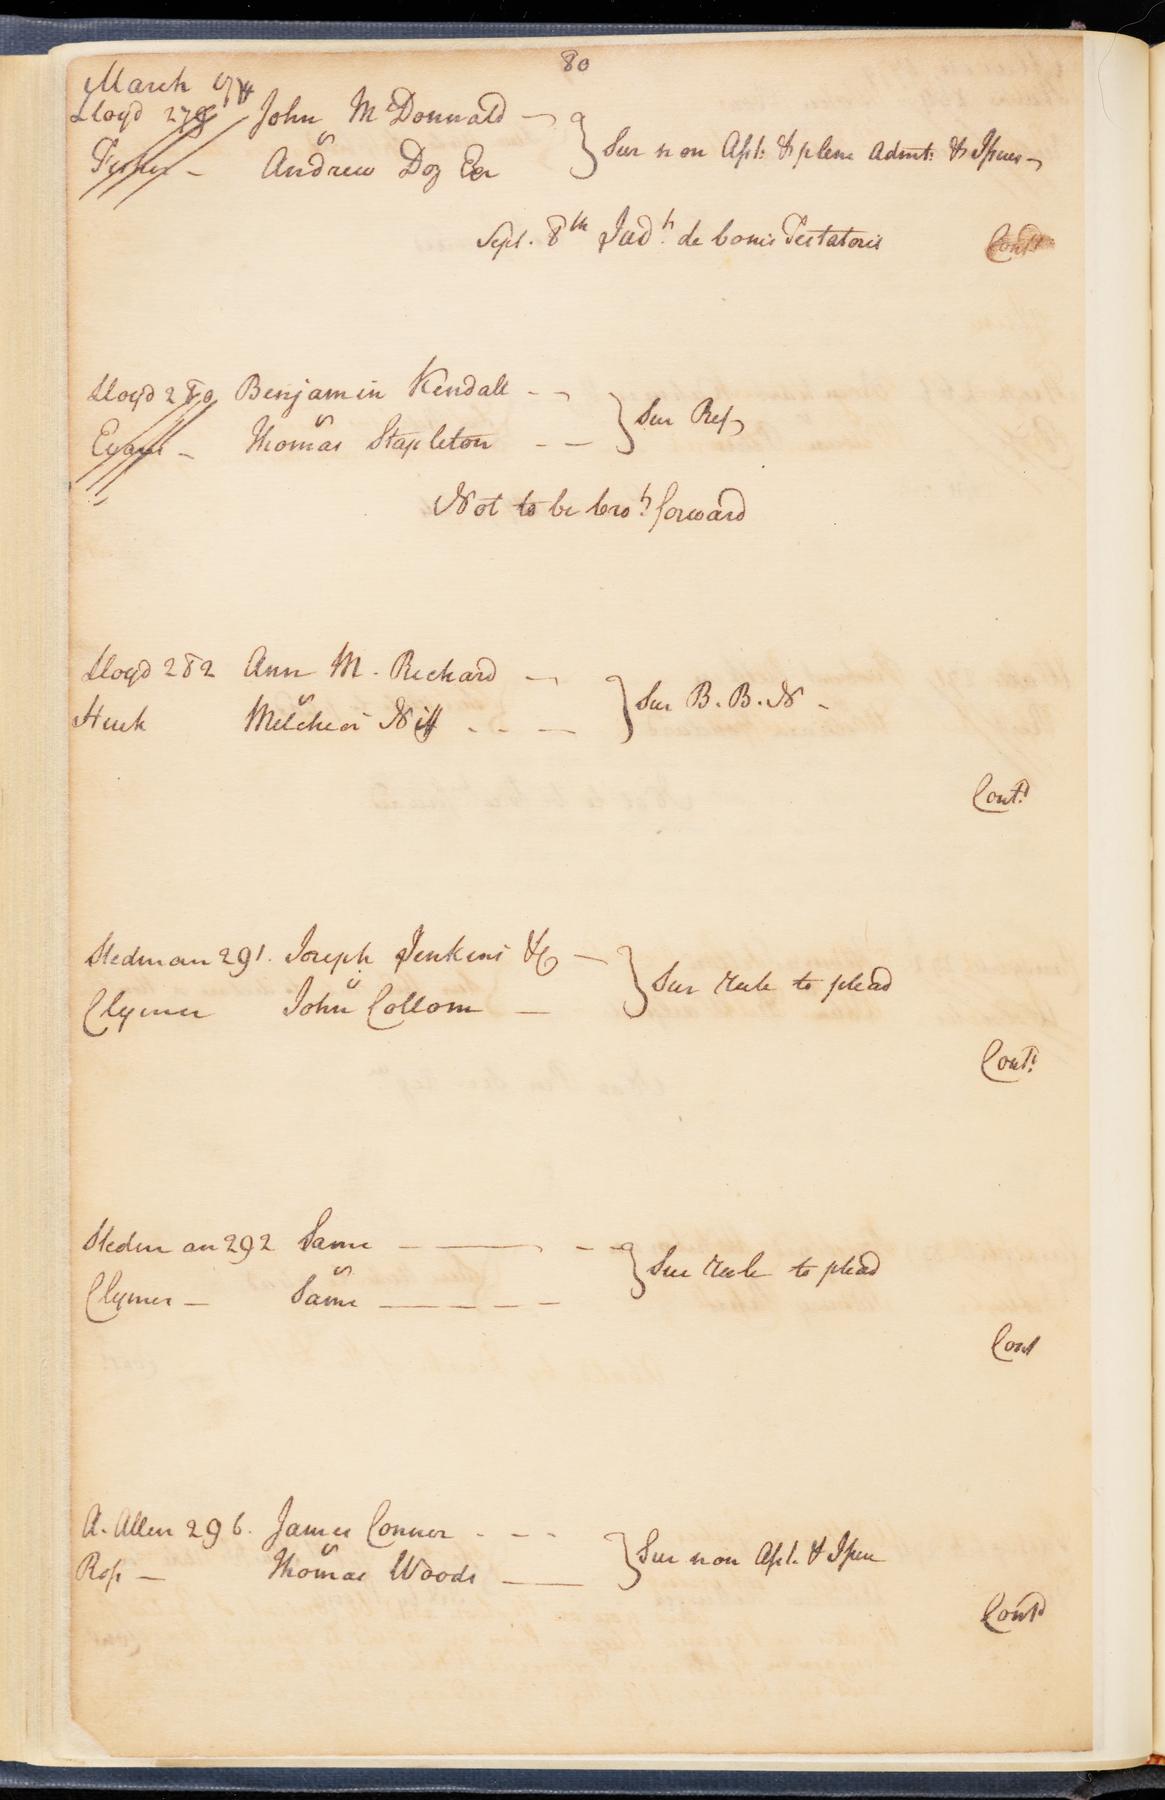 80
March
Lloyd 278 John McDonnald
vs
Andrew Doz Exr
Sur non Asst. & plene Admt. & Issues
Sept. 8th Judt. de bonis Testatoris
Contd
Lloyd 280 Benjamin Kendall
vs
Evans Thomas Stapleton
Sur Ref
Not to be brot. forward
Lloyd 282 Ann M. Richard
vs
Melchior
Sur B. B. N
Contd
Stedman 291. Joseph Jenkins &c
vs
Clymer John Collom
Sur rule to plead
Contd
Stedman 292 Same
vs
Clymer Same
Sur rule to plead
Cont
A. Allen 296. James Conner
vs
Ross Thomas Woods
Sur non Asst. & Issue
Contd